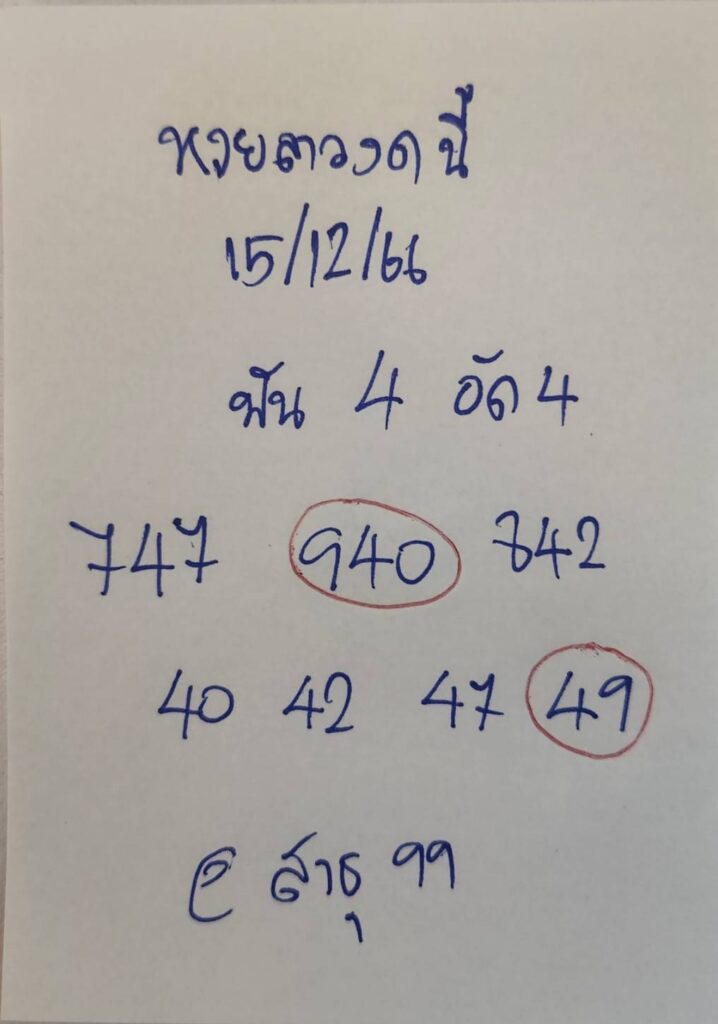 หวยลาวงวดนี้
15/12/66
ฟัน 4 อัด 4
747 940 842
40 42 47 49
@ สาธุ 99